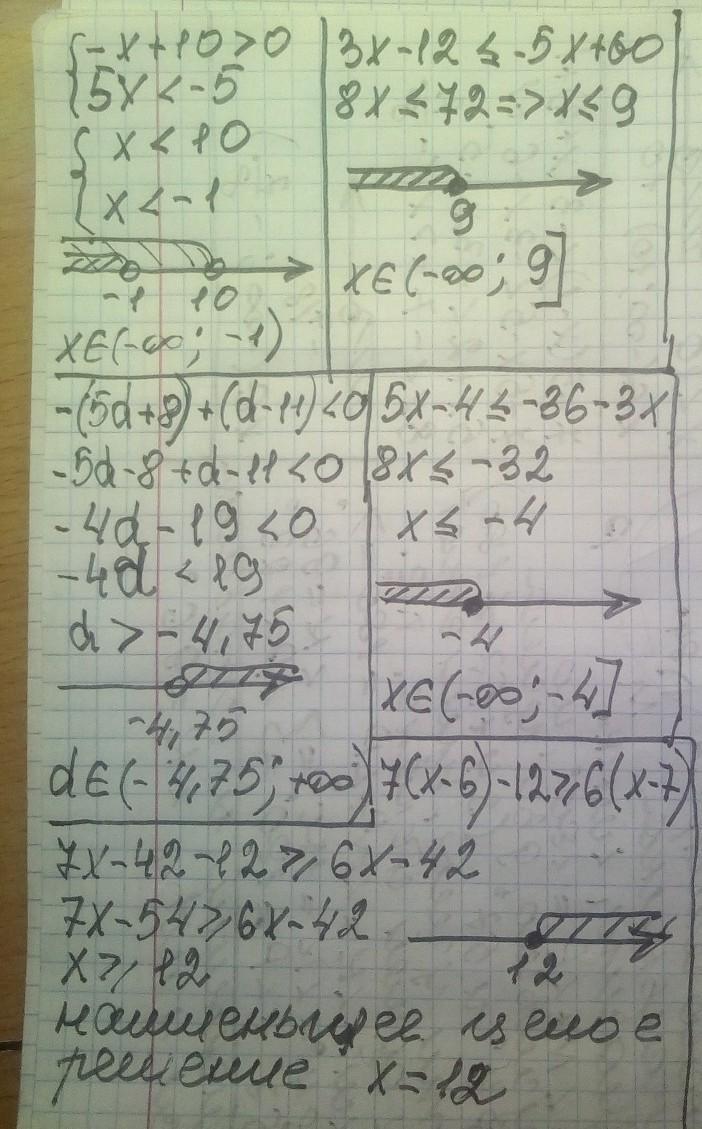 -x+10>0
5x<-5
x<10
x<-1
-1 10
x∈(-∞; -1)
3x-12≤-5x+60
8x≤72=>x≤9
9
x∈(-∞; 9]
-(5d+8)+(d-11)<0
-5d-8+d-11<0
-4d-19<0
-4d<19
d>-4,75
-4,75
d∈(-4,75; +∞)
5x-4≤-36-3x
8x≤-32
x≤-4
-4
x∈(-∞; -4]
7(x-6)-12≥6(x-7)
7x-42-12≥6x-42
7x-54≥6x-42
x≥12
12
наименьшее целое
решение x=12